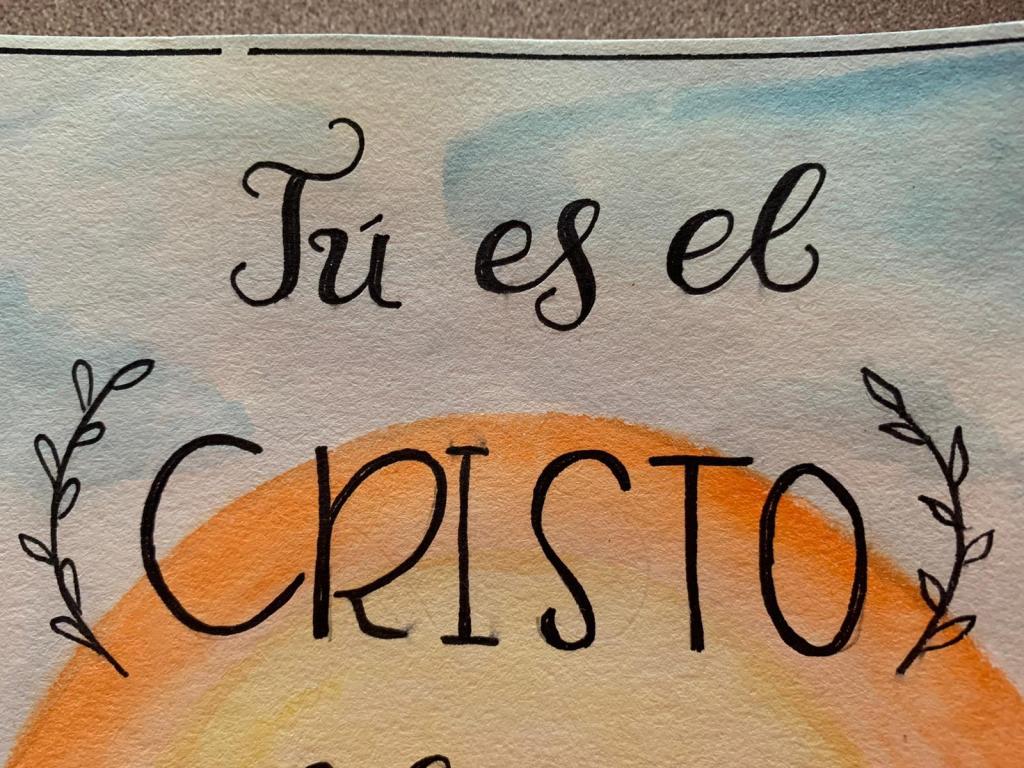 Tú es el
CRISTO